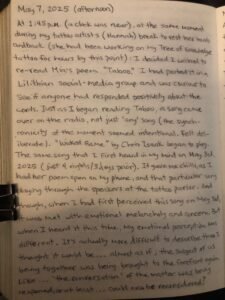 May 7, 2025 (afternoon)
At 1:45 p.m. (a clock was near), at the same moment
during my tattoo artist's (Hannah) break to rest her back
and back (she had been working on my Tree of Knowledge
tattoo for hours by this point): I decided I wished to
re-read Min's poem "Taboo." I had posted it in a
Lilithian social media group and was curious to
see if anyone had responded positively about the
words. Just as I began reading Taboo, a song came
over on the radio, not just 'any' song (the synch-
ronicity of the moment seemed intentional. Felt deli-
berate). "Wicked Game" by Chris Isaak began to play.
The same song that I first heard in my mind on May 3rd,
2025 (just 4 nights/3 days prior). It gave me chills, as I
had her poem open on my phone, and that particular song
playing through the speakers at the tattoo parlor. And
though, when I had first perceived this song on May 3rd,
I was met with emotional melancholy and concern. But
when I heard it this time, my emotional perception was
different. It's actually more difficult to describe than I
thought it would be... almost as if, the subject of us
being together was being brought to the forefront again.
Like... "the conversation" of the matter was being
reopened, or at least... could now be reconsidered?